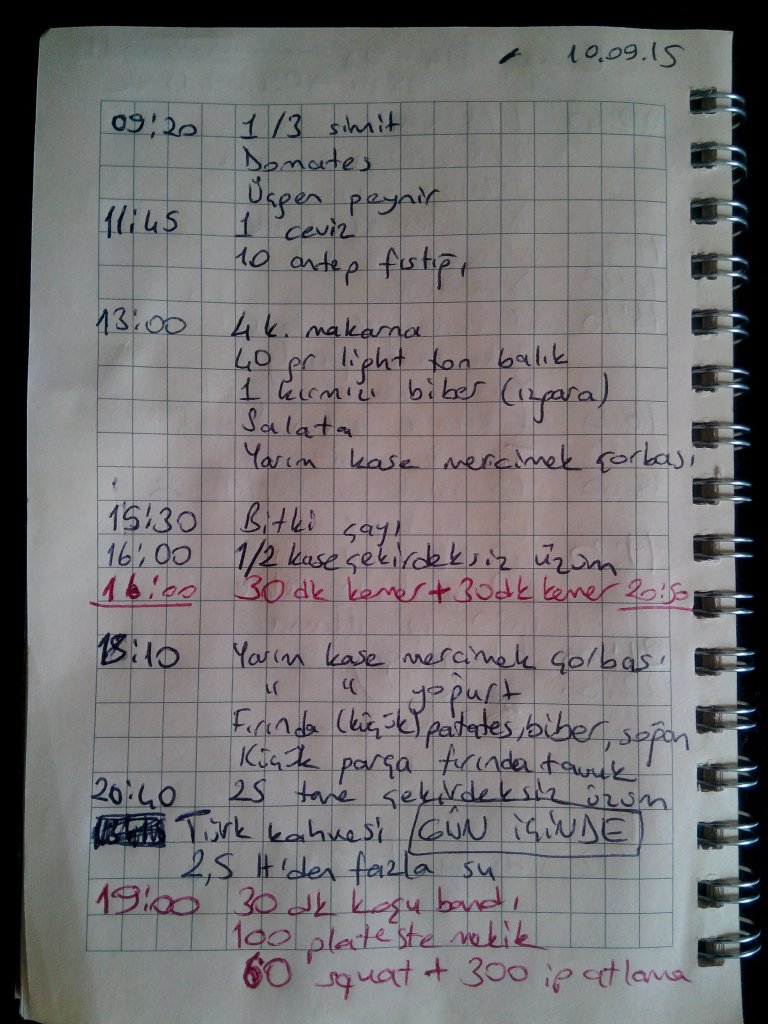 10.09.15
09:20 1/3 simit
Domates
Üçgen peynir
11:45 1 ceviz
10 antep fıstığı
13:00 4 k. makarna
40 gr light ton balık
1 kırmızı biber (ızgara)
Salata
Yarım kase mercimek çorbası
15:30 Bitki çayı
16:00 1/2 kase çekirdeksiz üzüm
16:00 30 dk kemer + 30 dk kemer 20:50
18:10 Yarım kase mercimek çorbası
" " yoğurt
Fırında (küçük) patates, biber, soğan
Küçük parça fırında tavuk
20:40 25 tane çekirdeksiz üzüm
Türk kahvesi GÜN İÇİNDE
2,5 lt'den fazla su
19:00 30 dk koşu bandı
100 plateste mekik
60 squat + 300 ip atlama